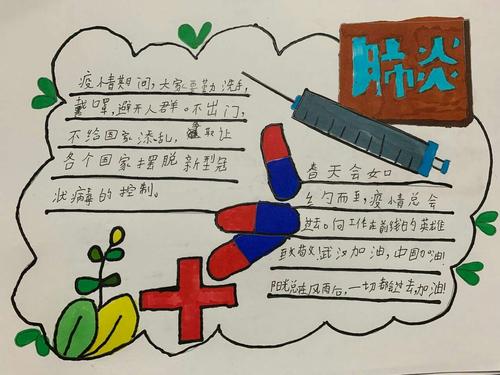 肺炎
疫情期间,大家要勤洗手,
戴口罩,避开人群。不出门,
不给国家添乱,争取让
各个国家摆脱新型冠
状病毒的控制。
春天会如
约而至,疫情总会
过去。向工作在前线的英雄
致敬,武汉加油,中国加油!
阳光总在风雨后,一切都会过去加油!